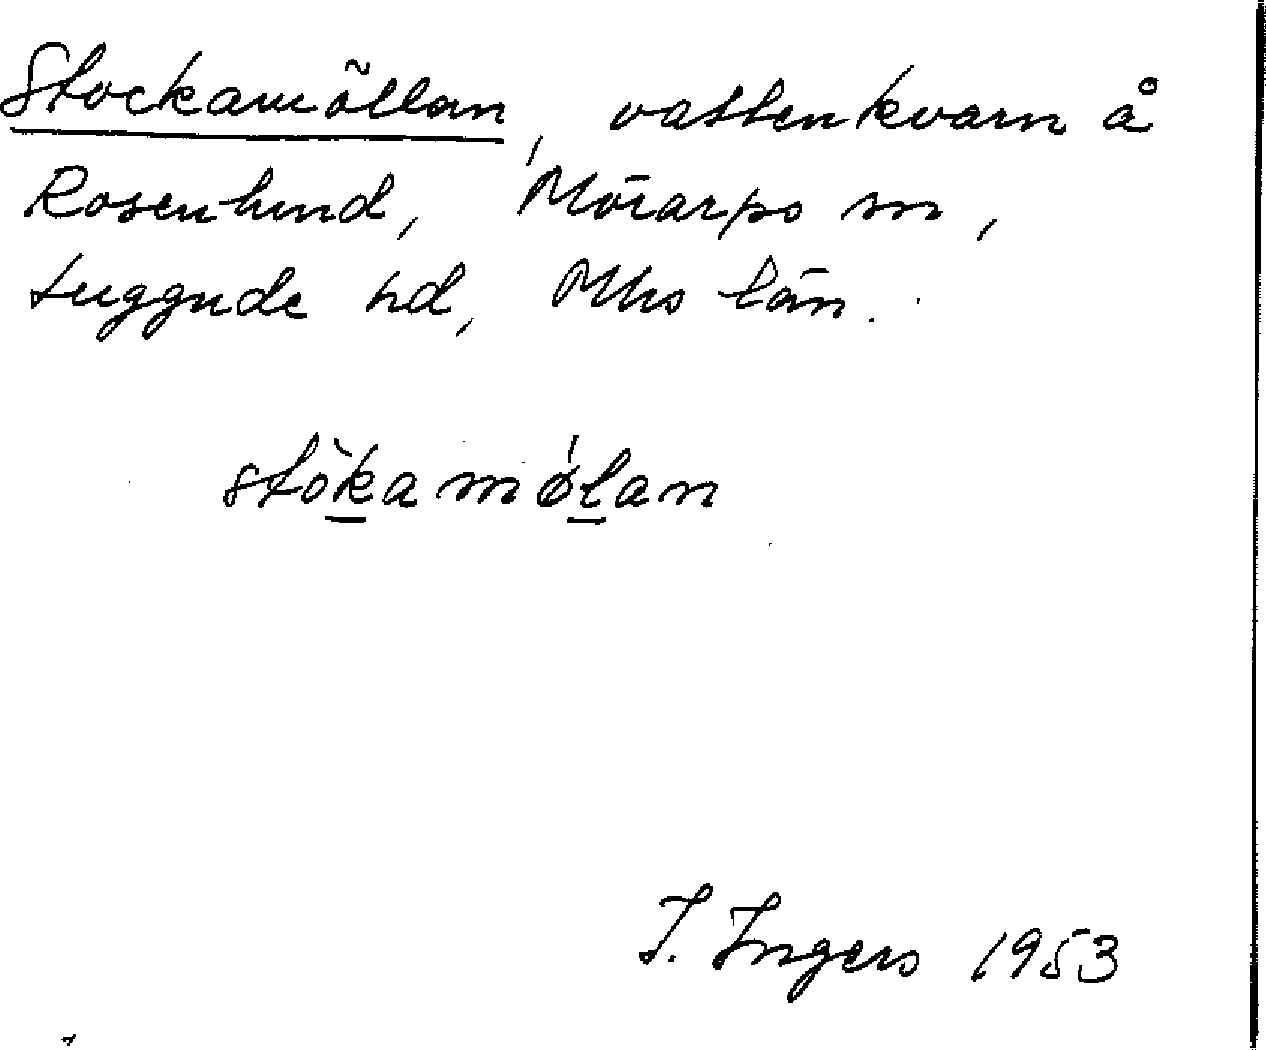 Stockamöllan, vattenkvarn å
Rosenlund, Mörarps sn,
Luggude hd, Mhs län.
stòkamǿlan
I. Ingers 1953